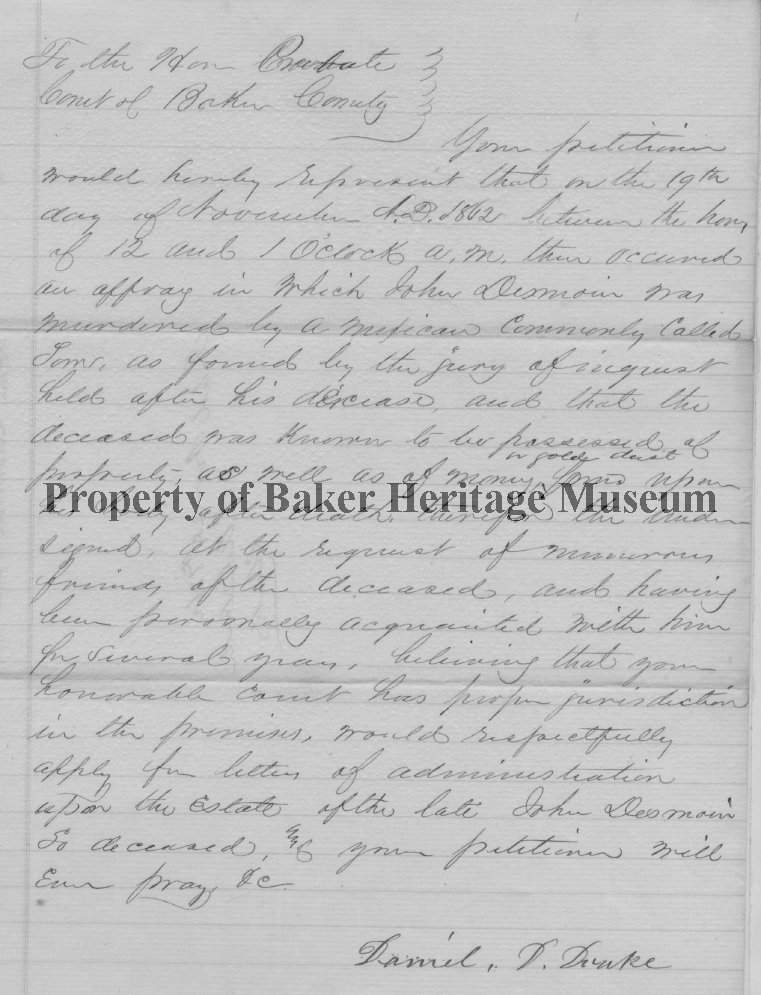 To the Hon Probate
Court of Baker County
Your petitioner
would hereby represent that on the 19th
day of November A.D. 1862 between the hours
of 12 and 1 O'clock a.m. there occured
an affray in which John Desmoin was
murdered by a mexican commonly called
Tom, as found by the jury of inquest
held after his decease, and that the
deceased was known to be possessed of
or gold dust
property, as well as of money found upon
Property of Baker Heritage Museum
his body after death, therefor the under-
signed, at the request of numerous
friends of the deceased, and having
been personally acquainted with him
for several years, believing that your
honorable court has proper jurisdiction
in the premises, would respectfully
apply for letters of administration
upon the Estate of the late John Desmoin
So deceased, & your petitioner will
Ever pray, &c.
Daniel, D. Drake